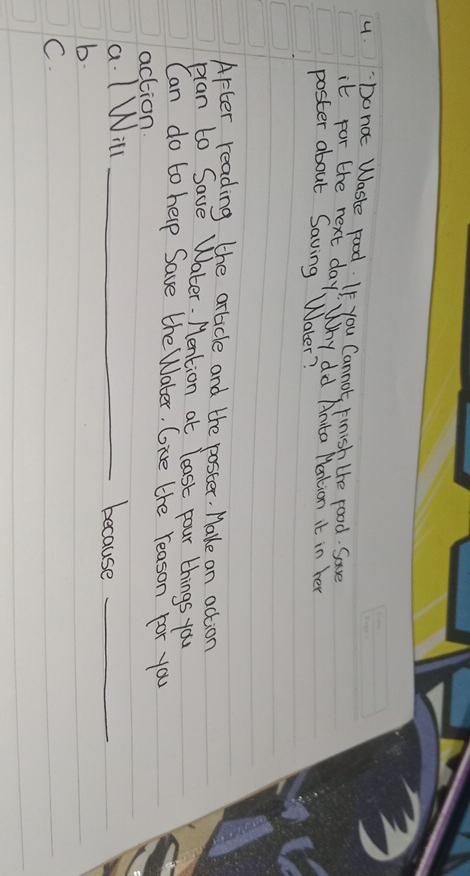 4. "Do not Waste food. If you Cannot finish the food. Save
it for the next day." Why did Anita Mention it in her
poster about Saving Water?
After reading the article and the poster. Make an action
plan to Save Water. Mention at least four things you
Can do to help Save the Water. Give the reason for you
action.
a. I Will ____________ because ____________
b.
c.